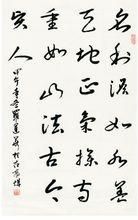 名利淡如水養
天地正氣操守
重如山法古今
完人
甲午